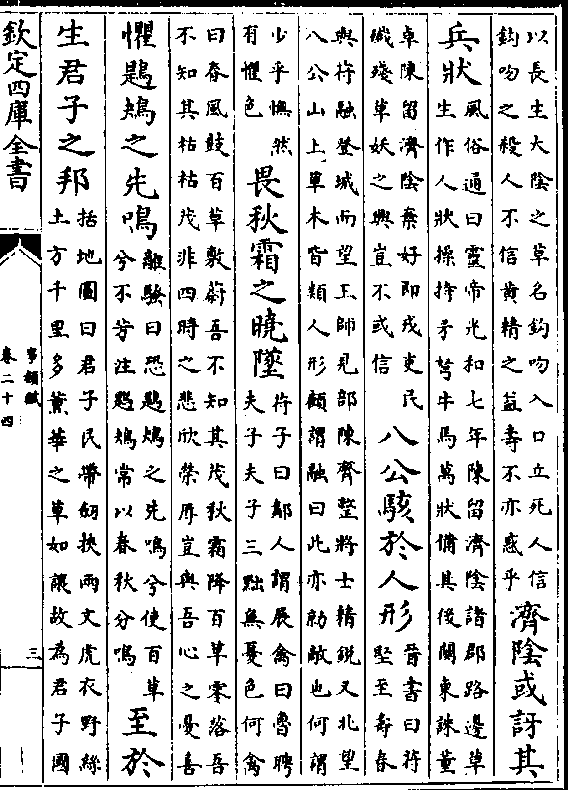 以長生大陰之草名鈎吻入口立死人信
鈎吻之殺人不信黄精之益壽不亦惑乎
濟陰或訝其
兵狀
風俗通曰靈帝光和七年陳留濟陰諸郡路邊草
生作人狀操持矛弩牛馬萬狀備其後關東誅董
卓陳留濟陰棄好即戎吏民
殱殘草妖之興豈不或信
八公駭於人形
晉書曰苻
堅至壽春
與苻融登城而望王師見部陳齊整將士精銳又北望
八公山上草木皆類人形顧謂融曰此亦勍敵也何謂
少乎憮然
有懼色
畏秋霜之曉墜
苻子曰鄰人謂展禽曰魯聘
夫子夫子三黜無憂色何禽
曰春風鼓百草敷蔚吾不知其茂秋霜降百草零落吾
不知其枯枯茂非四時之悲欣榮辱豈與吾心之憂喜
懼鶗鴂之先鳴
離騷曰恐鶗鴂之先鳴兮使百草
兮不芳注鶗鴂常以春秋分鳴
至於
生君子之邦
括地圖曰君子民帶劒挾兩文虎衣野絲
土方千里多薰華之草如讓故為君子國
欽定四庫全書
事類賦
卷二十四
三